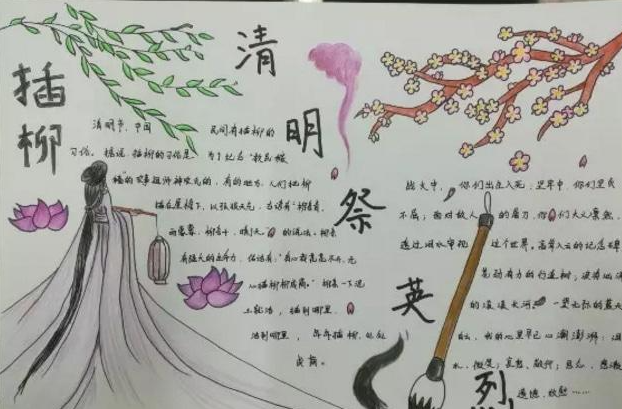 插柳
清明祭英烈
清明节，中国民间有插柳的
习俗。据说，插柳的习俗是为了纪念"教民稼
穑"的农事祖师神农氏的，有的地方，人们把柳
插在屋檐下，以预报天气，古谚有"柳条青，
雨蒙蒙；柳条干，晴了天"的说法。柳条
有强大的生命力，俗话说："有心栽花花不开，无
心插柳柳成荫。"柳条一下说
土就活，插到哪里，
活到哪里，年年插柳，处处
成荫。
战火中，你们出生入死；坚牢中，你们坚贞
不屈；面对敌人的屠刀，你们大义凛然，
透过泪水审视这个世界。高耸入云的纪念碑
苍劲有力的行道树；波荡
的滚滚长河；一望无际的蓝天
，我的心里早已心潮澎湃：泪
水、微笑；哀愁、敬仰；思念、感激
遗憾、欣慰……